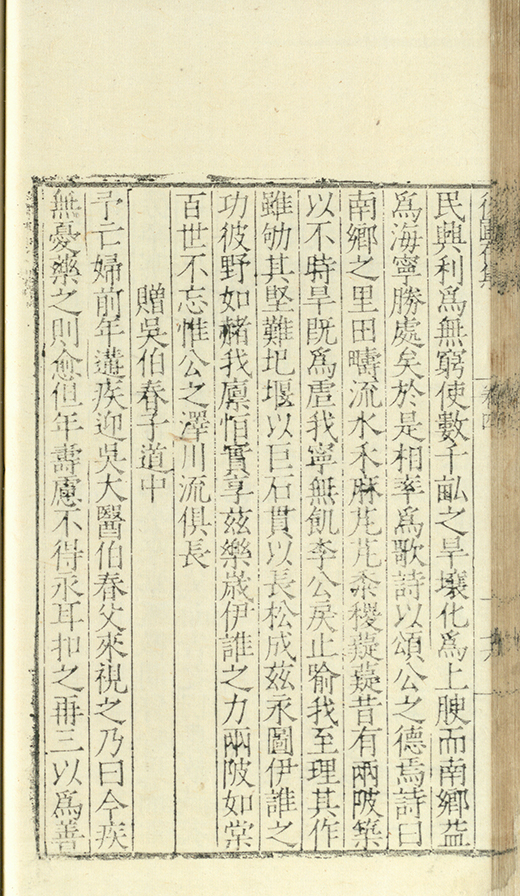 卷四
民興利爲無窮使數千畝之旱壤化爲上腴而南鄉益
爲海寧勝處矣於是相率爲歌詩以頌公之德焉詩曰
南鄉之里田疇流水禾麻芃芃黍稷薿薿昔有兩陂築
以不時旱既爲虐我寧無飢李公戾止喻我至理其作
雖劬其堅難圯堰以巨石貫以長松成茲永圖伊誰之
功彼野如赭我廩怕實享茲樂嵗伊誰之力兩陂如棠
百世不忘惟公之澤川流俱長
贈吳伯春子道中
予亡婦前年遘疾迎吳大醫伯春父來視之乃曰今疾
無憂藥之則愈但年壽慮不得永耳扣之再三以爲善